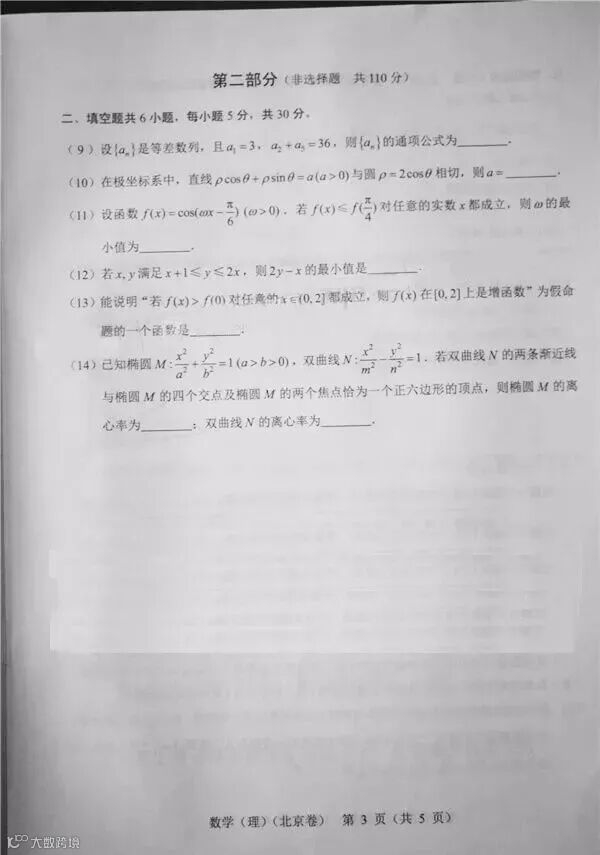 第二部分（非选择题 共110分）
二、填空题共6小题，每小题5分，共30分。
（9）设{aₙ}是等差数列，且a₁=3，a₂+a₅=36，则{aₙ}的通项公式为________.
（10）在极坐标系中，直线ρcosθ+ρsinθ=a(a>0)与圆ρ=2cosθ相切，则a=________.
（11）设函数f(x)=cos(ωx-π/6)(ω>0)．若f(x)≤f(π/4)对任意的实数x都成立，则ω的最
小值为________.
（12）若x,y满足x+1≤y≤2x，则2y-x的最小值是________.
（13）能说明“若f(x)>f(0)对任意的x∈(0,2]都成立，则f(x)在[0,2]上是增函数”为假命
题的一个函数是________.
（14）已知椭圆M:x²/a²+y²/b²=1(a>b>0)，双曲线N:x²/m²-y²/n²=1．若双曲线N的两条渐近线
与椭圆M的四个交点及椭圆M的两个焦点恰为一个正六边形的顶点，则椭圆M的离
心率为________；双曲线N的离心率为________.
数学（理）（北京卷） 第 3 页（共 5 页）
大数跨境